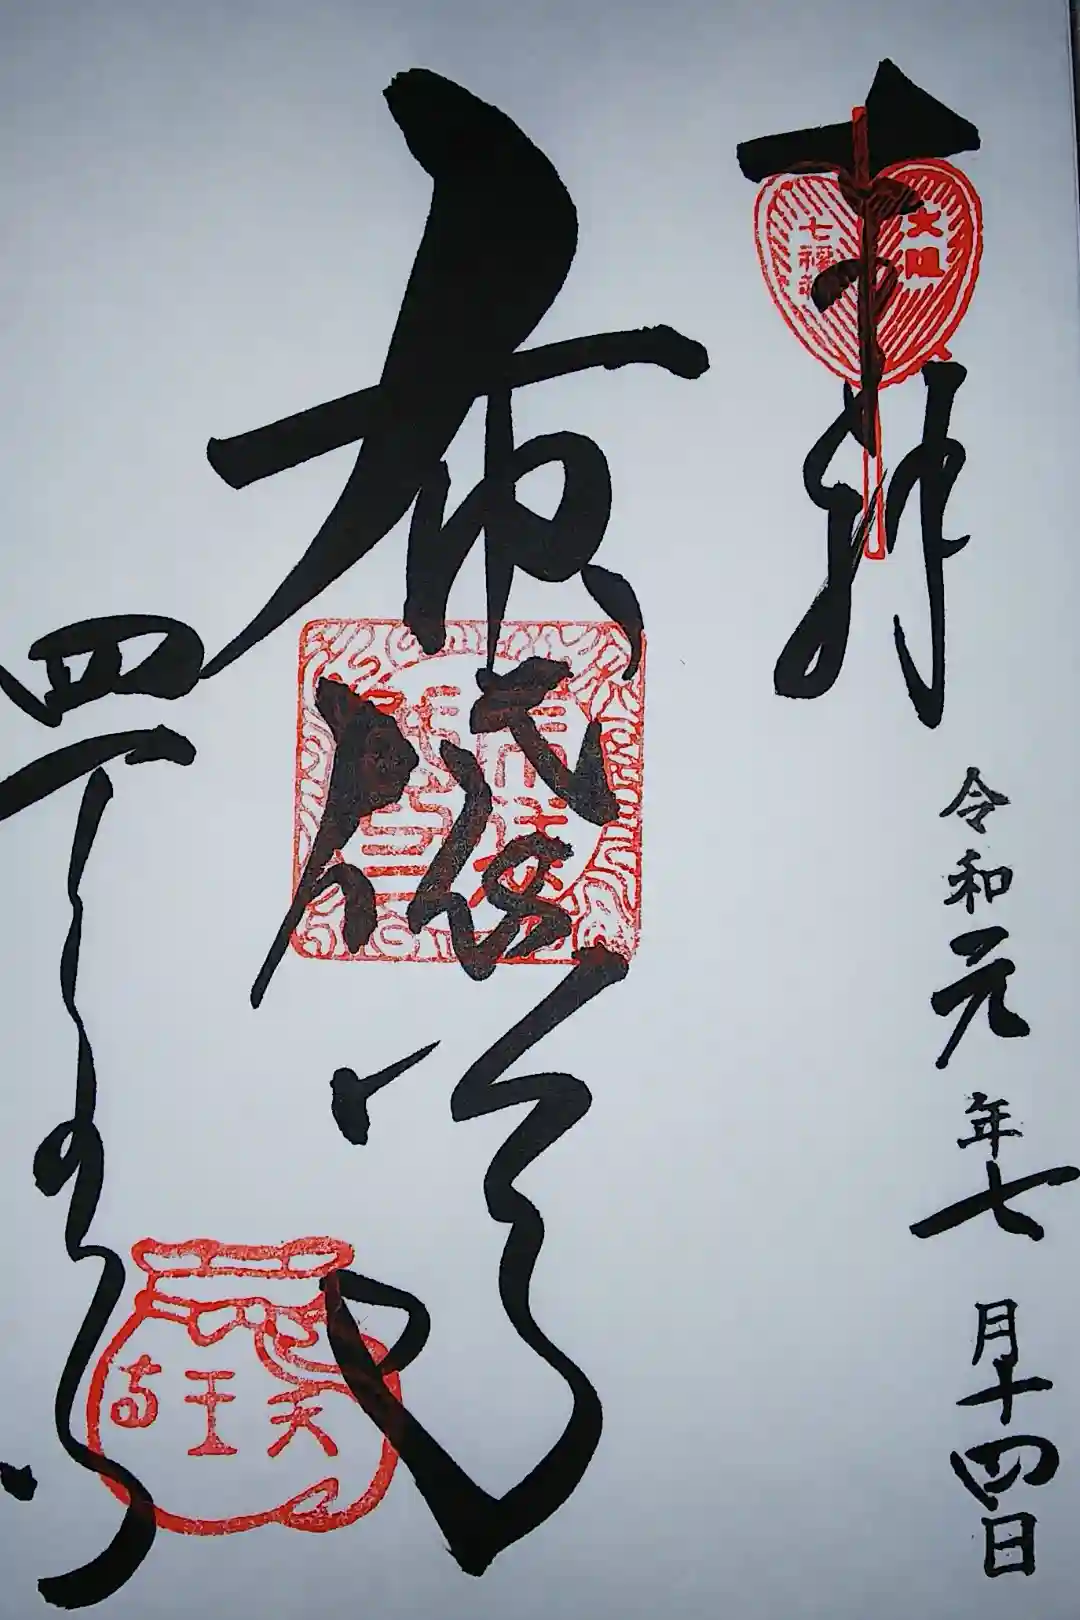 奉拝
大阪
七福神
令和元年七月十四日
布袋尊
四天王寺
天王寺